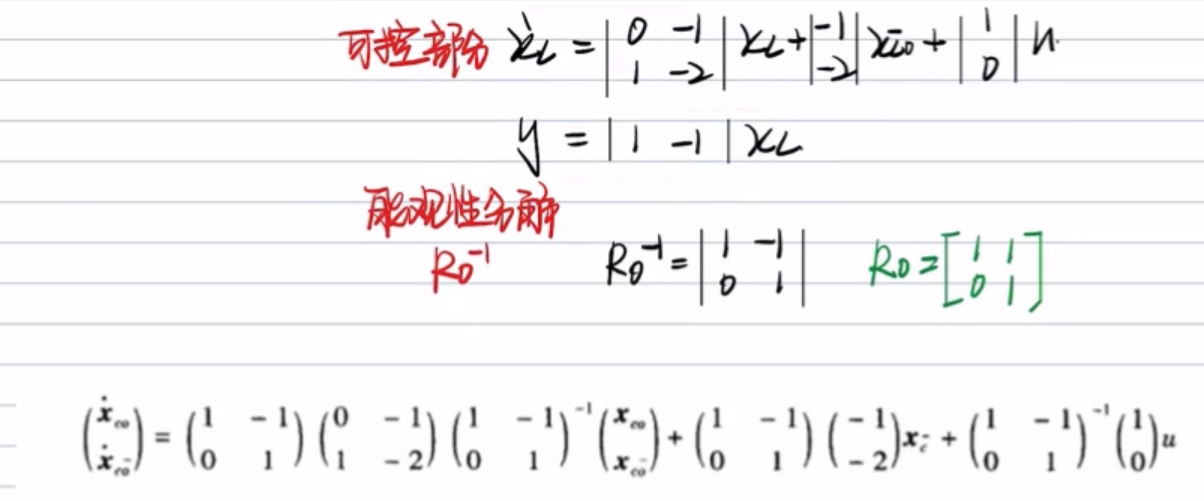 可控部分 ẋc = |0 -1; 1 -2| xc + |-1; -2| xc̄o + |1; 0| u
y = |1 -1| xc
能观性分解
Ro⁻¹ Ro⁻¹ = |1 -1; 0 1| Ro = [1 1; 0 1]
(ẋco; ẋcō) = (1 -1; 0 1)(0 -1; 1 -2)(1 -1; 0 1)⁻¹(xco; xcō) + (1 -1; 0 1)(-1; -2)xc̄ + (1 -1; 0 1)⁻¹(1; 0)u